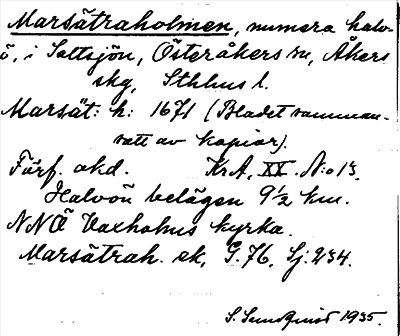 Marsätraholmen, numera halv-
ö, i Saltsjön, Österåkers sn, Åkers
skg, Sthlms l.
Marsät: h: 1671 (Bladet samman-
satt av kopior).
Förf. okd. KrA, XX. N:o 13.
Halvön belägen 9½ km.
NNÖ Vaxholms kyrka.
Marsätrah. ek, G. 76, Sj. 234.
S. Sundquist 1935.